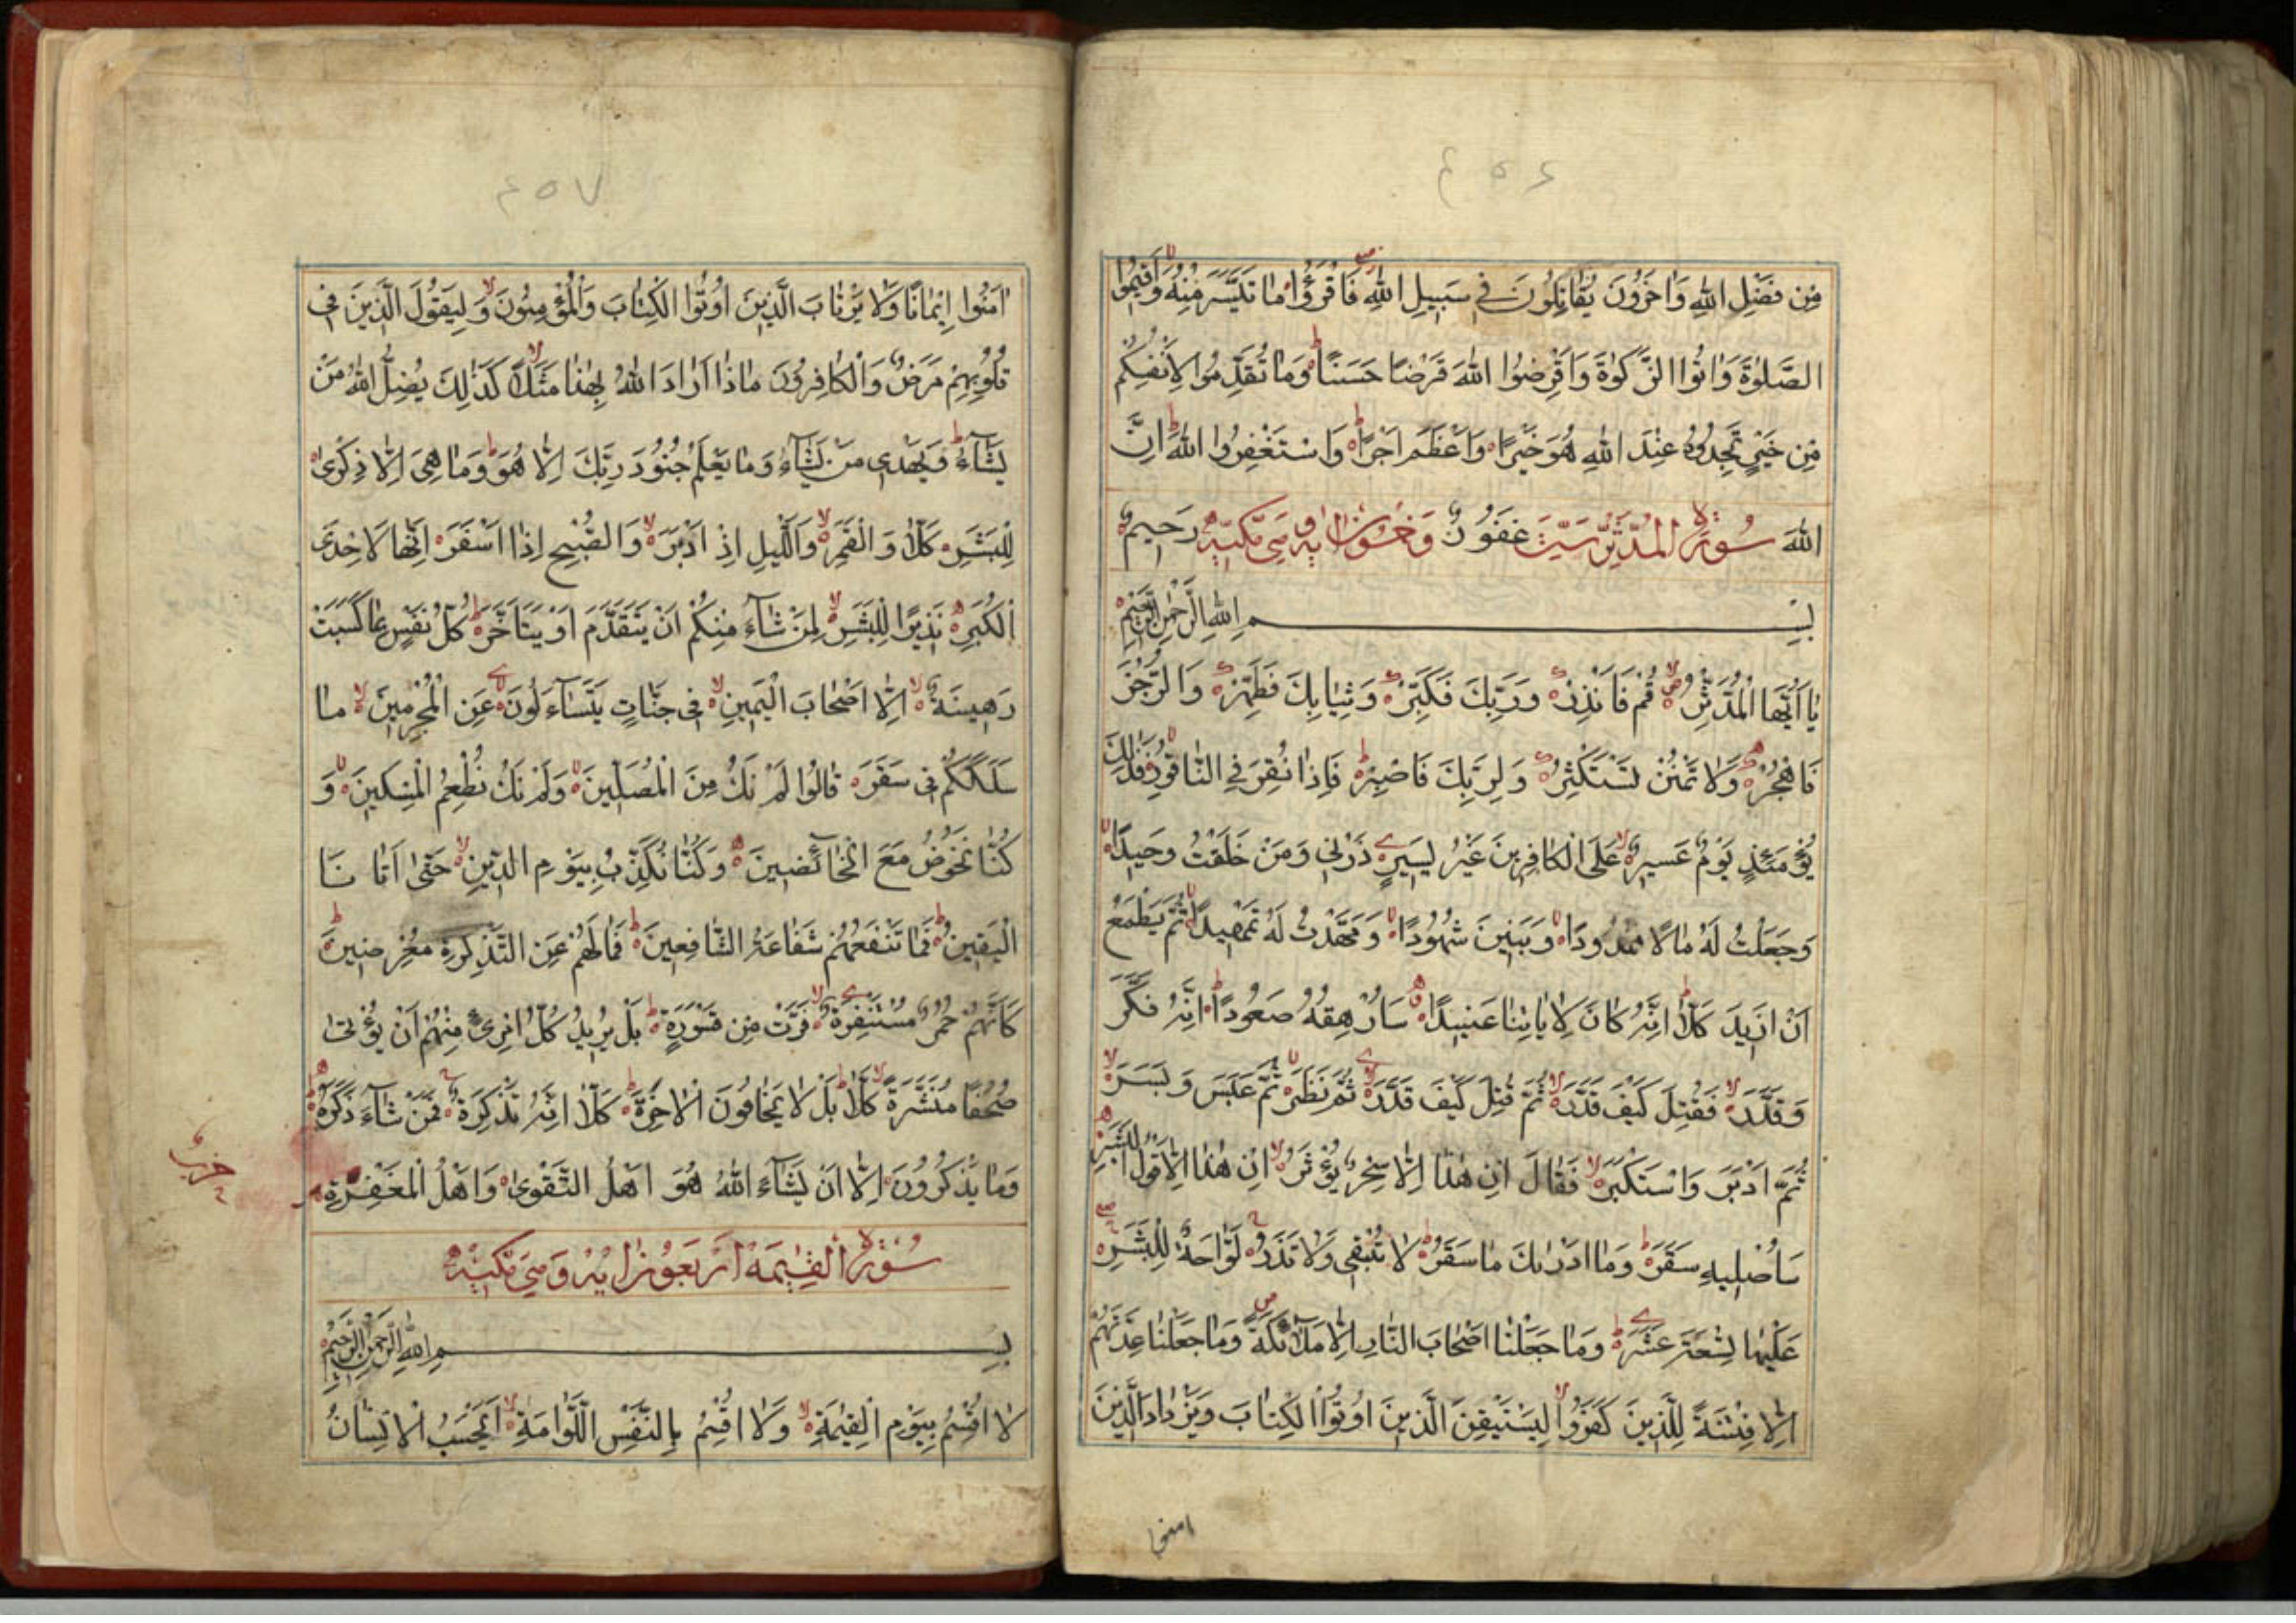 ٤٥٦
مِن فَضْلِ اللهِ وَاٰخَرُونَ يُقَاتِلُونَ فِي سَبِيلِ اللهِ فَاقْرَؤُا مَا تَيَسَّرَ مِنْهُ وَاَقِيمُوا
الصَّلٰوةَ وَاٰتُوا الزَّكٰوةَ وَاَقْرِضُوا اللهَ قَرْضًا حَسَنًا وَمَا تُقَدِّمُوا لِاَنْفُسِكُمْ
مِن خَيْرٍ تَجِدُوهُ عِنْدَ اللهِ هُوَ خَيْرًا وَاَعْظَمَ اَجْرًا وَاسْتَغْفِرُوا اللهَ اِنَّ
اللهَ سُورَةُ الْمُدَّثِّر سِتّ غَفُورٌ وَخَمْسُونَ اٰيَة وَهِيَ مَكِّيَّة رَحِيمٌ
بِسْمِ اللهِ الرَّحْمٰنِ الرَّحِيمِ
يَا اَيُّهَا الْمُدَّثِّرُ قُمْ فَاَنْذِرْ وَرَبَّكَ فَكَبِّرْ وَثِيَابَكَ فَطَهِّرْ وَالرُّجْزَ
فَاهْجُرْ وَلَا تَمْنُنْ تَسْتَكْثِرُ وَلِرَبِّكَ فَاصْبِرْ فَاِذَا نُقِرَ فِي النَّاقُورِ فَذٰلِكَ
يَوْمَئِذٍ يَوْمٌ عَسِيرٌ عَلَى الْكَافِرِينَ غَيْرُ يَسِيرٍ ذَرْنِي وَمَنْ خَلَقْتُ وَحِيدًا
وَجَعَلْتُ لَهُ مَالًا مَمْدُودًا وَبَنِينَ شُهُودًا وَمَهَّدْتُ لَهُ تَمْهِيدًا ثُمَّ يَطْمَعُ
اَنْ اَزِيدَ كَلَّا اِنَّهُ كَانَ لِاٰيَاتِنَا عَنِيدًا سَاُرْهِقُهُ صَعُودًا اِنَّهُ فَكَّرَ
وَقَدَّرَ فَقُتِلَ كَيْفَ قَدَّرَ ثُمَّ قُتِلَ كَيْفَ قَدَّرَ ثُمَّ نَظَرَ ثُمَّ عَبَسَ وَبَسَرَ
ثُمَّ اَدْبَرَ وَاسْتَكْبَرَ فَقَالَ اِنْ هٰذَا اِلَّا سِحْرٌ يُؤْثَرُ اِنْ هٰذَا اِلَّا قَوْلُ الْبَشَرِ
سَاُصْلِيهِ سَقَرَ وَمَا اَدْرٰىكَ مَا سَقَرُ لَا تُبْقِي وَلَا تَذَرُ لَوَّاحَةٌ لِلْبَشَرِ
عَلَيْهَا تِسْعَةَ عَشَرَ وَمَا جَعَلْنَا اَصْحَابَ النَّارِ اِلَّا مَلٰٓئِكَةً وَمَا جَعَلْنَا عِدَّتَهُمْ
اِلَّا فِتْنَةً لِلَّذِينَ كَفَرُوا لِيَسْتَيْقِنَ الَّذِينَ اُوتُوا الْكِتَابَ وَيَزْدَادَ الَّذِينَ
اٰمنوا
٤٥٧
اٰمَنُوا اِيمَانًا وَلَا يَرْتَابَ الَّذِينَ اُوتُوا الْكِتَابَ وَالْمُؤْمِنُونَ وَلِيَقُولَ الَّذِينَ فِي
قُلُوبِهِمْ مَرَضٌ وَالْكَافِرُونَ مَاذَا اَرَادَ اللهُ بِهٰذَا مَثَلًا كَذٰلِكَ يُضِلُّ اللهُ مَنْ
يَشَآءُ وَيَهْدِي مَنْ يَشَآءُ وَمَا يَعْلَمُ جُنُودَ رَبِّكَ اِلَّا هُوَ وَمَا هِيَ اِلَّا ذِكْرٰى
لِلْبَشَرِ كَلَّا وَالْقَمَرِ وَاللَّيْلِ اِذْ اَدْبَرَ وَالصُّبْحِ اِذَا اَسْفَرَ اِنَّهَا لَاِحْدَى
الْكُبَرِ نَذِيرًا لِلْبَشَرِ لِمَنْ شَآءَ مِنْكُمْ اَنْ يَتَقَدَّمَ اَوْ يَتَاَخَّرَ كُلُّ نَفْسٍ بِمَا كَسَبَتْ
رَهِينَةٌ اِلَّا اَصْحَابَ الْيَمِينِ فِي جَنَّاتٍ يَتَسَآءَلُونَ عَنِ الْمُجْرِمِينَ مَا
سَلَكَكُمْ فِي سَقَرَ قَالُوا لَمْ نَكُ مِنَ الْمُصَلِّينَ وَلَمْ نَكُ نُطْعِمُ الْمِسْكِينَ وَ
كُنَّا نَخُوضُ مَعَ الْخَآئِضِينَ وَكُنَّا نُكَذِّبُ بِيَوْمِ الدِّينِ حَتّٰى اَتَانَا
الْيَقِينُ فَمَا تَنْفَعُهُمْ شَفَاعَةُ الشَّافِعِينَ فَمَا لَهُمْ عَنِ التَّذْكِرَةِ مُعْرِضِينَ
كَاَنَّهُمْ حُمُرٌ مُسْتَنْفِرَةٌ فَرَّتْ مِن قَسْوَرَةٍ بَلْ يُرِيدُ كُلُّ امْرِئٍ مِنْهُمْ اَنْ يُؤْتٰى
صُحُفًا مُنَشَّرَةً كَلَّا بَلْ لَا يَخَافُونَ الْاٰخِرَةَ كَلَّا اِنَّهُ تَذْكِرَةٌ فَمَنْ شَآءَ ذَكَرَهُ
وَمَا يَذْكُرُونَ اِلَّا اَنْ يَشَآءَ اللهُ هُوَ اَهْلُ التَّقْوٰى وَاَهْلُ الْمَغْفِرَةِ
حزب
سُورَةُ الْقِيٰمَة اَرْبَعُونَ اٰيَة وَهِيَ مَكِّيَّة
بِسْمِ اللهِ الرَّحْمٰنِ الرَّحِيمِ
لَا اُقْسِمُ بِيَوْمِ الْقِيٰمَةِ وَلَا اُقْسِمُ بِالنَّفْسِ اللَّوَّامَةِ اَيَحْسَبُ الْاِنْسَانُ